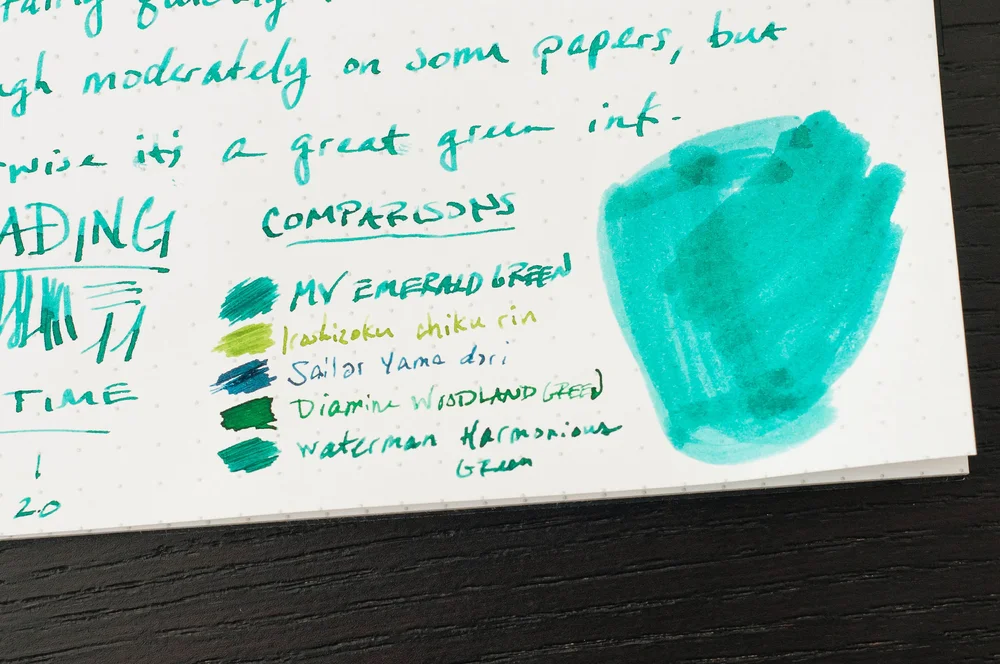 quickly
moderately on some papers, but
it's a great green ink.
ADING
COMPARISONS
MV EMERALD GREEN
Iroshizoku chiku rin
Sailor Yama dori
Diamine WOODLAND GREEN
TIME
Waterman Harmonious
Green
2.0